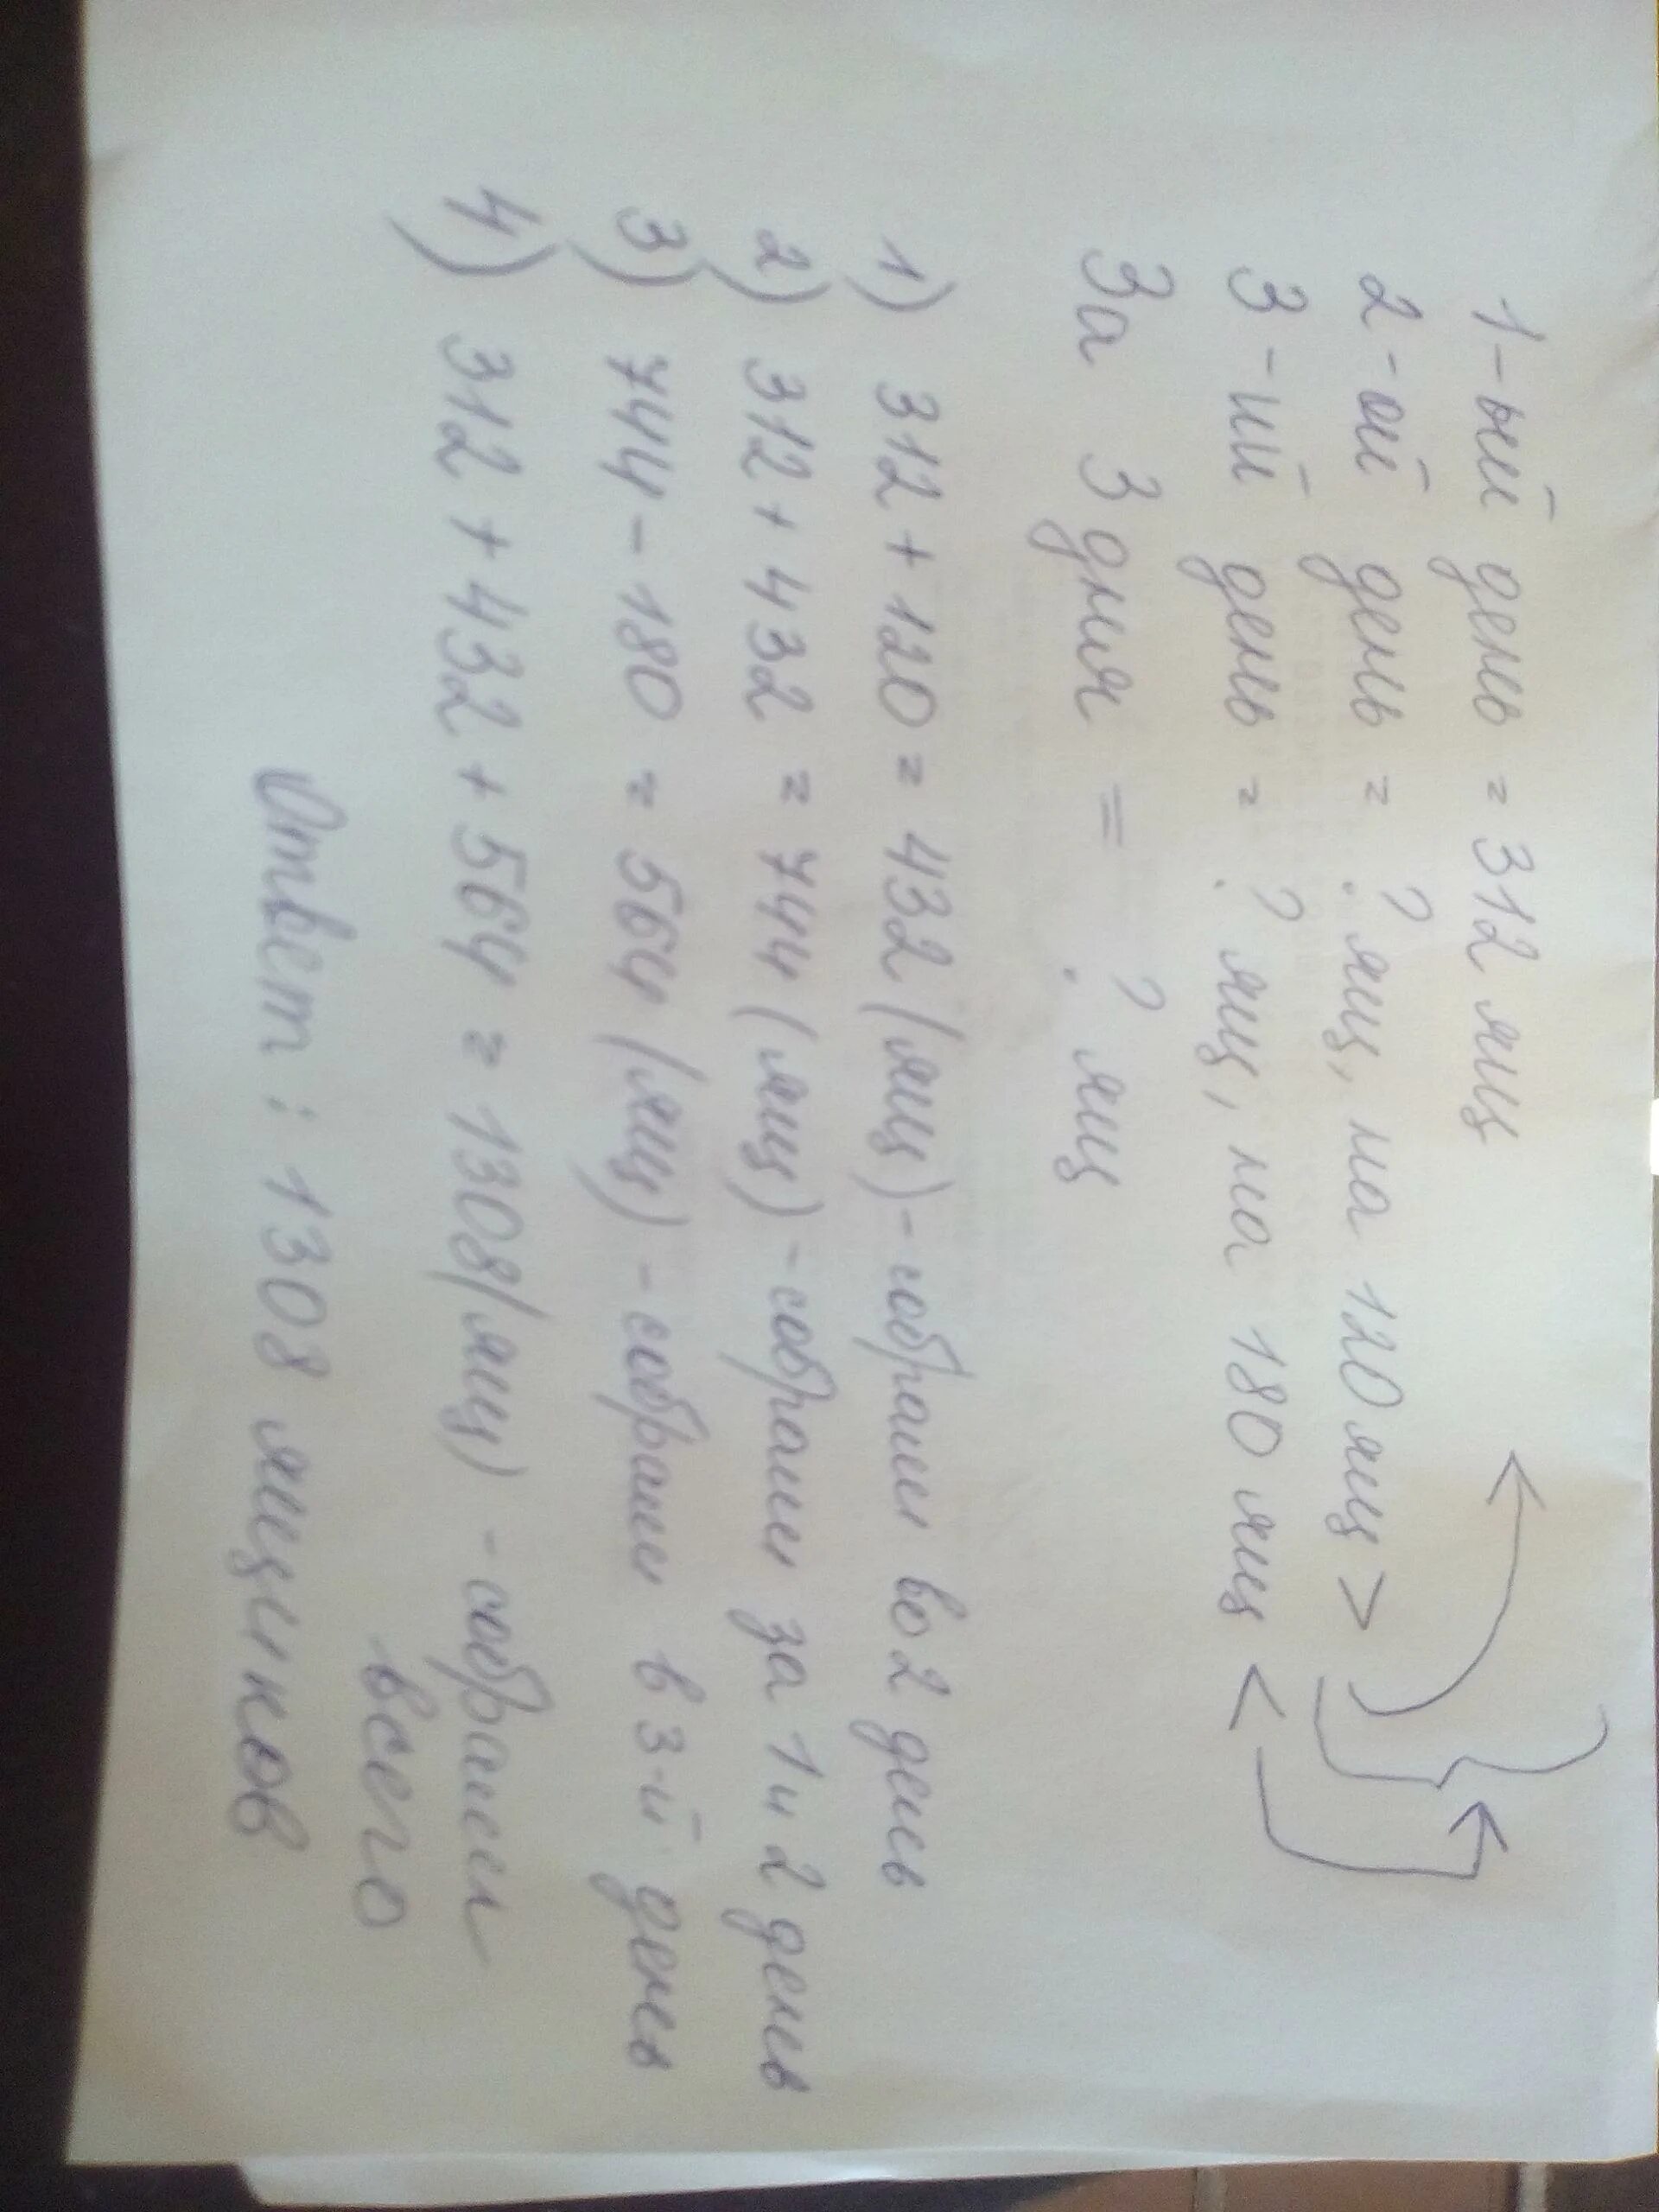 1-ый день = 312 ящ
2-ой день = ? ящ, на 120 ящ >
3-ий день = ? ящ, на 180 ящ <
За 3 дня = ? ящ
1) 312 + 120 = 432 (ящ) - собрали во 2 день
2) 312 + 432 = 744 (ящ) - собрали за 1 и 2 день
3) 744 - 180 = 564 (ящ) - собрали в 3-й день
4) 312 + 432 + 564 = 1308 (ящ) - собрали
всего
Ответ : 1308 ящиков